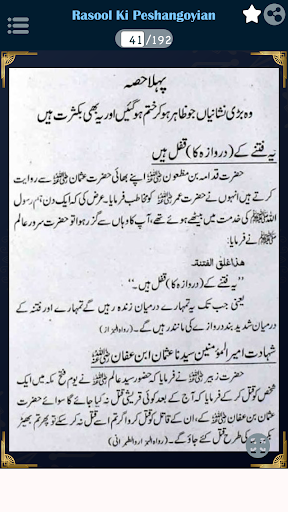 Rasool Ki Peshangoyian
41 /192
پہلا حصہ
وہ بڑی نشانیاں جو ظاہر ہو کر ختم ہو گئیں اور یہ بھی بکثرت ہیں
یہ فتنے کے (دروازہ کا) قفل ہیں
حضرت قدامہ بن مظعون ﷜ اپنے بھائی حضرت عثمان ﷜ سے روایت
کرتے ہیں انہوں نے حضرت عمر ﷜ کو مخاطب فرمایا۔ عرض کی ایک دن ہم رسول
اللہ ﷺ کی خدمت میں بیٹھے ہوئے تھے، آپ کا وہاں سے گزر ہوا تو حضرت سرور عالم
ﷺ نے فرمایا:
هذا غلق الفتنة.
"یہ فتنے کے (دروازہ کا) قفل ہیں۔"
یعنی جب تک یہ تمہارے درمیان زندہ رہیں گے تمہارے اور فتنہ کے
درمیان شدید بند دروازے کی مانند رہیں گے۔ (رواہ البزاز)
شہادت امیر المؤمنین سیدنا عثمان ابن عفان ﷜
حضرت زبیر ﷜ نے فرمایا کہ حضور سید عالم ﷺ نے یوم فتح مکہ میں ایک
شخص کو قتل کر کے فرمایا کہ آج کے بعد کوئی قریشی قتل نہ کیا جائے گا سوائے حضرت
عثمان بن عفان ﷜ کے، ان کے قاتل کو قتل کرو اگر تم اسے قتل نہ کر سکو تو پھر بھیڑ
کی طرح قتل کئے جاؤ گے۔ (رواہ البزار والطبرانی)